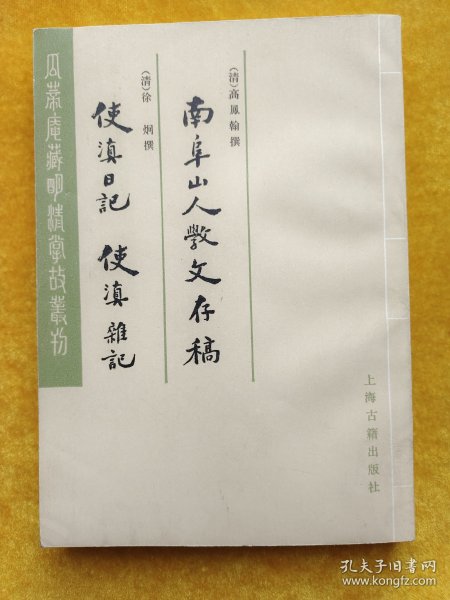 (清)高鳳翰撰
南阜山人斆文存稿
(清)徐炯撰
使滇日記 使滇雜記
上海古籍出版社
瓜蒂庵藏明清掌故叢刊
孔夫子旧书网
www.kongfz.com